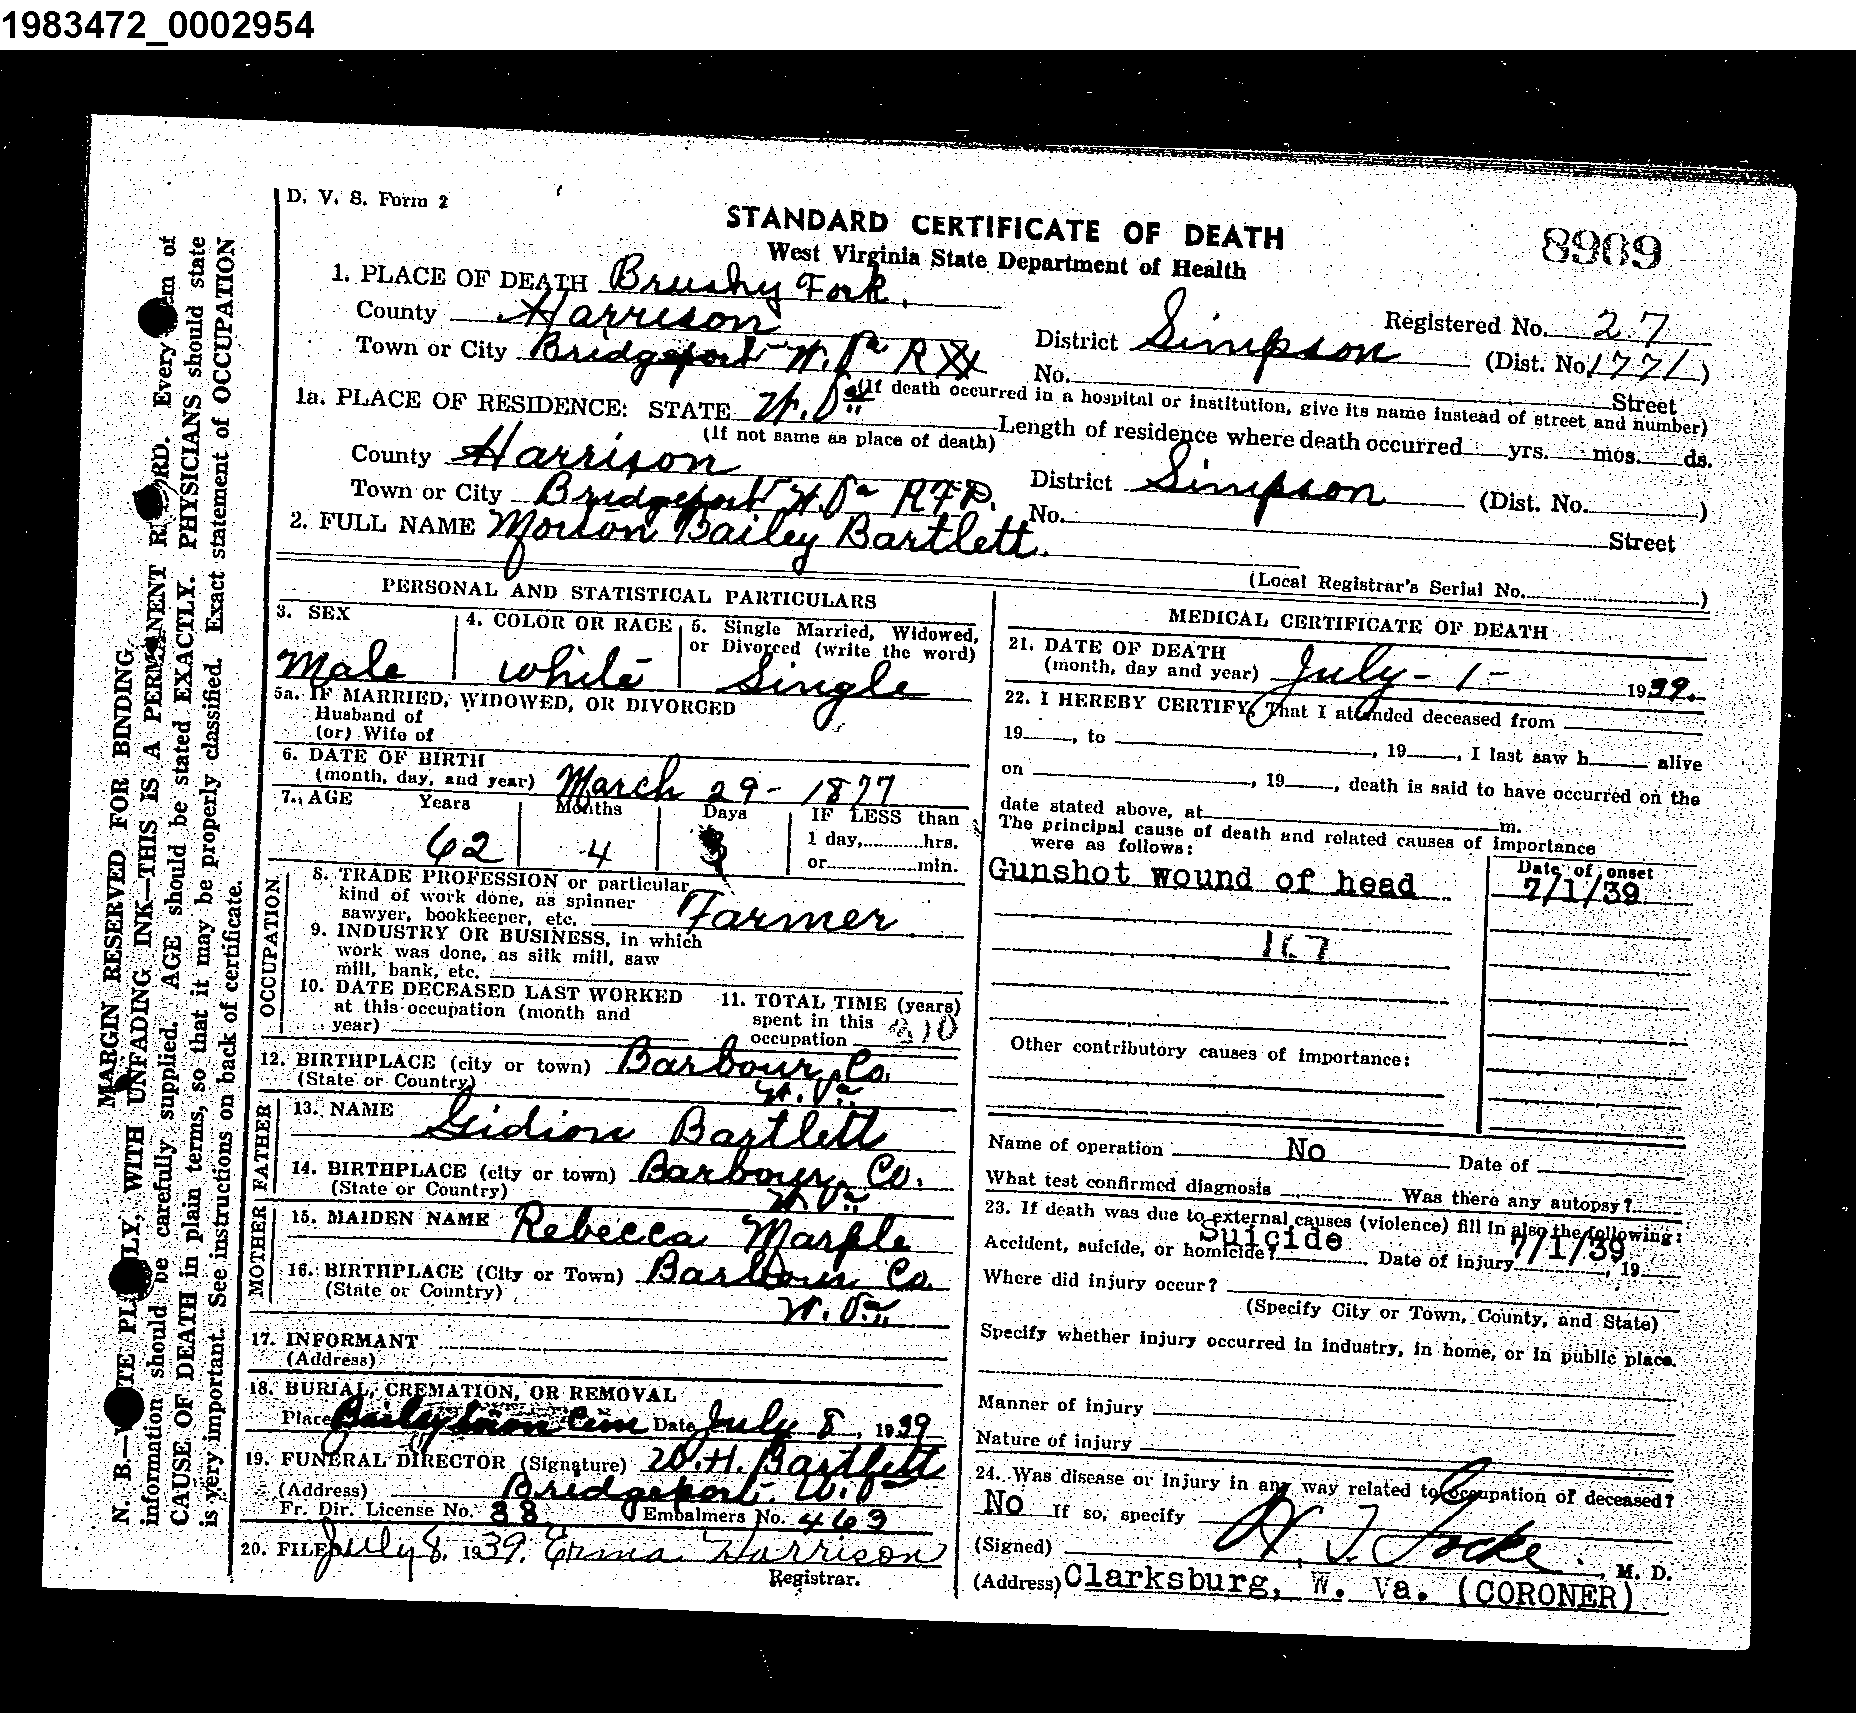 1983472_0002954
D. V. S. Form 2
STANDARD CERTIFICATE OF DEATH
West Virginia State Department of Health
8909
1. PLACE OF DEATH Brushy Fork.
County Harrison
Town or City Bridgeport W. Va R
District Simpson
Registered No. 27
(Dist. No. 1771)
No. Street
(If death occurred in a hospital or institution, give its name instead of street and number)
1a. PLACE OF RESIDENCE: STATE W. Va.
(If not same as place of death)
Length of residence where death occurred yrs. mos. ds.
County Harrison
Town or City Bridgeport W. Va RFD.
District Simpson (Dist. No. )
No. Street
2. FULL NAME Bailey Bartlett.
(Local Registrar's Serial No. )
PERSONAL AND STATISTICAL PARTICULARS
3. SEX
Male
4. COLOR OR RACE
White
5. Single Married, Widowed,
or Divorced (write the word)
Single
5a. IF MARRIED, WIDOWED, OR DIVORCED
Husband of
(or) Wife of
6. DATE OF BIRTH
(month, day, and year) March 29 - 1877
7. AGE Years Months Days IF LESS than
62 4 1 day, hrs.
or min.
OCCUPATION
8. TRADE PROFESSION or particular
kind of work done, as spinner
sawyer, bookkeeper, etc. Farmer
9. INDUSTRY OR BUSINESS, in which
work was done, as silk mill, saw
mill, bank, etc.
10. DATE DECEASED LAST WORKED
at this occupation (month and
year)
11. TOTAL TIME (years)
spent in this
occupation
12. BIRTHPLACE (city or town) Barbour Co.
(State or Country) W. Va.
FATHER
13. NAME Gidion Bartlett
14. BIRTHPLACE (city or town) Barbour Co.
(State or Country) W. Va.
MOTHER
15. MAIDEN NAME Rebecca Marple
16. BIRTHPLACE (City or Town) Barbour Co.
(State or Country) W. Va.
17. INFORMANT
(Address)
18. BURIAL, CREMATION, OR REMOVAL
Place Baileytown Cem Date July 8, 1939
19. FUNERAL DIRECTOR (Signature) W. H. Bartlett
(Address) Bridgeport. W. Va
Fr. Dir. License No. 38 Embalmers No. 463
20. FILED July 8. 1939. Erma Harrison
Registrar.
MEDICAL CERTIFICATE OF DEATH
21. DATE OF DEATH
(month, day and year) July - 1 - 1939.
22. I HEREBY CERTIFY, That I attended deceased from
19 , to , 19 , I last saw h alive
on , 19 , death is said to have occurred on the
date stated above, at m.
The principal cause of death and related causes of importance
were as follows:
Date of onset
Gunshot wound of head 7/1/39
167
Other contributory causes of importance:
Name of operation No Date of
What test confirmed diagnosis Was there any autopsy?
23. If death was due to external causes (violence) fill in also the following:
Accident, suicide, or homicide? Suicide Date of injury 7/1/39, 19
Where did injury occur?
(Specify City or Town, County, and State)
Specify whether injury occurred in industry, in home, or in public place.
Manner of injury
Nature of injury
24. Was disease or injury in any way related to occupation of deceased?
No If so, specify
(Signed) , M. D.
(Address) Clarksburg, W. Va. (CORONER)
MARGIN RESERVED FOR BINDING
N. B.—WRITE PLAINLY, WITH UNFADING INK—THIS IS A PERMANENT RECORD. Every item of
information should be carefully supplied. AGE should be stated EXACTLY. PHYSICIANS should state
CAUSE OF DEATH in plain terms, so that it may be properly classified. Exact statement of OCCUPATION
is very important. See instructions on back of certificate.